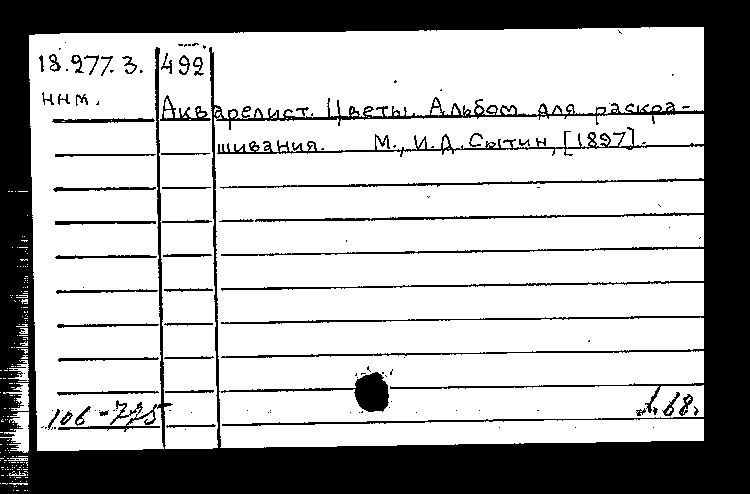 18.277.3. 492
ннм.
Акварелист. Цветы. Альбом для раскра-
шивания. М., И.Д. Сытин, [1897].
106-775
л. 68.